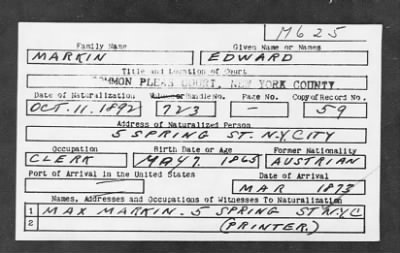 M625
Family Name Given Name or Names
MARKIN EDWARD
Title and Location of Court
COMMON PLEAS COURT, NEW YORK COUNTY
Date of Naturalization Volume or Bundle No. Page No. Copy of Record No.
OCT. 11. 1892 723 - 59
Address of Naturalized Person
5 SPRING ST. N.Y CITY
Occupation Birth Date or Age Former Nationality
CLERK MAY 7. 1865 AUSTRIAN
Port of Arrival in the United States Date of Arrival
- MAR 1873
Names, Addresses and Occupations of Witnesses To Naturalization
1 MAX MARKIN. 5 SPRING ST N.Y.C
2 (PRINTER.)